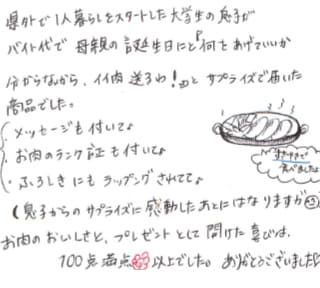 県外で1人暮らしをスタートした大学生の息子が
バイト代で母親の誕生日に「何をあげていいか
分からないから、イイ肉送るわ!」とサプライズで届いた
商品でした。
・メッセージも付いてて
・お肉のランク証も付いてて
・ふろしきにもラッピングされてて
すきやきで
食べましたよ
(息子からのサプライズに感動したあとにはなりますが
お肉のおいしさと、プレゼントとして開けた喜びは、
100点満点以上でした。ありがとうございました